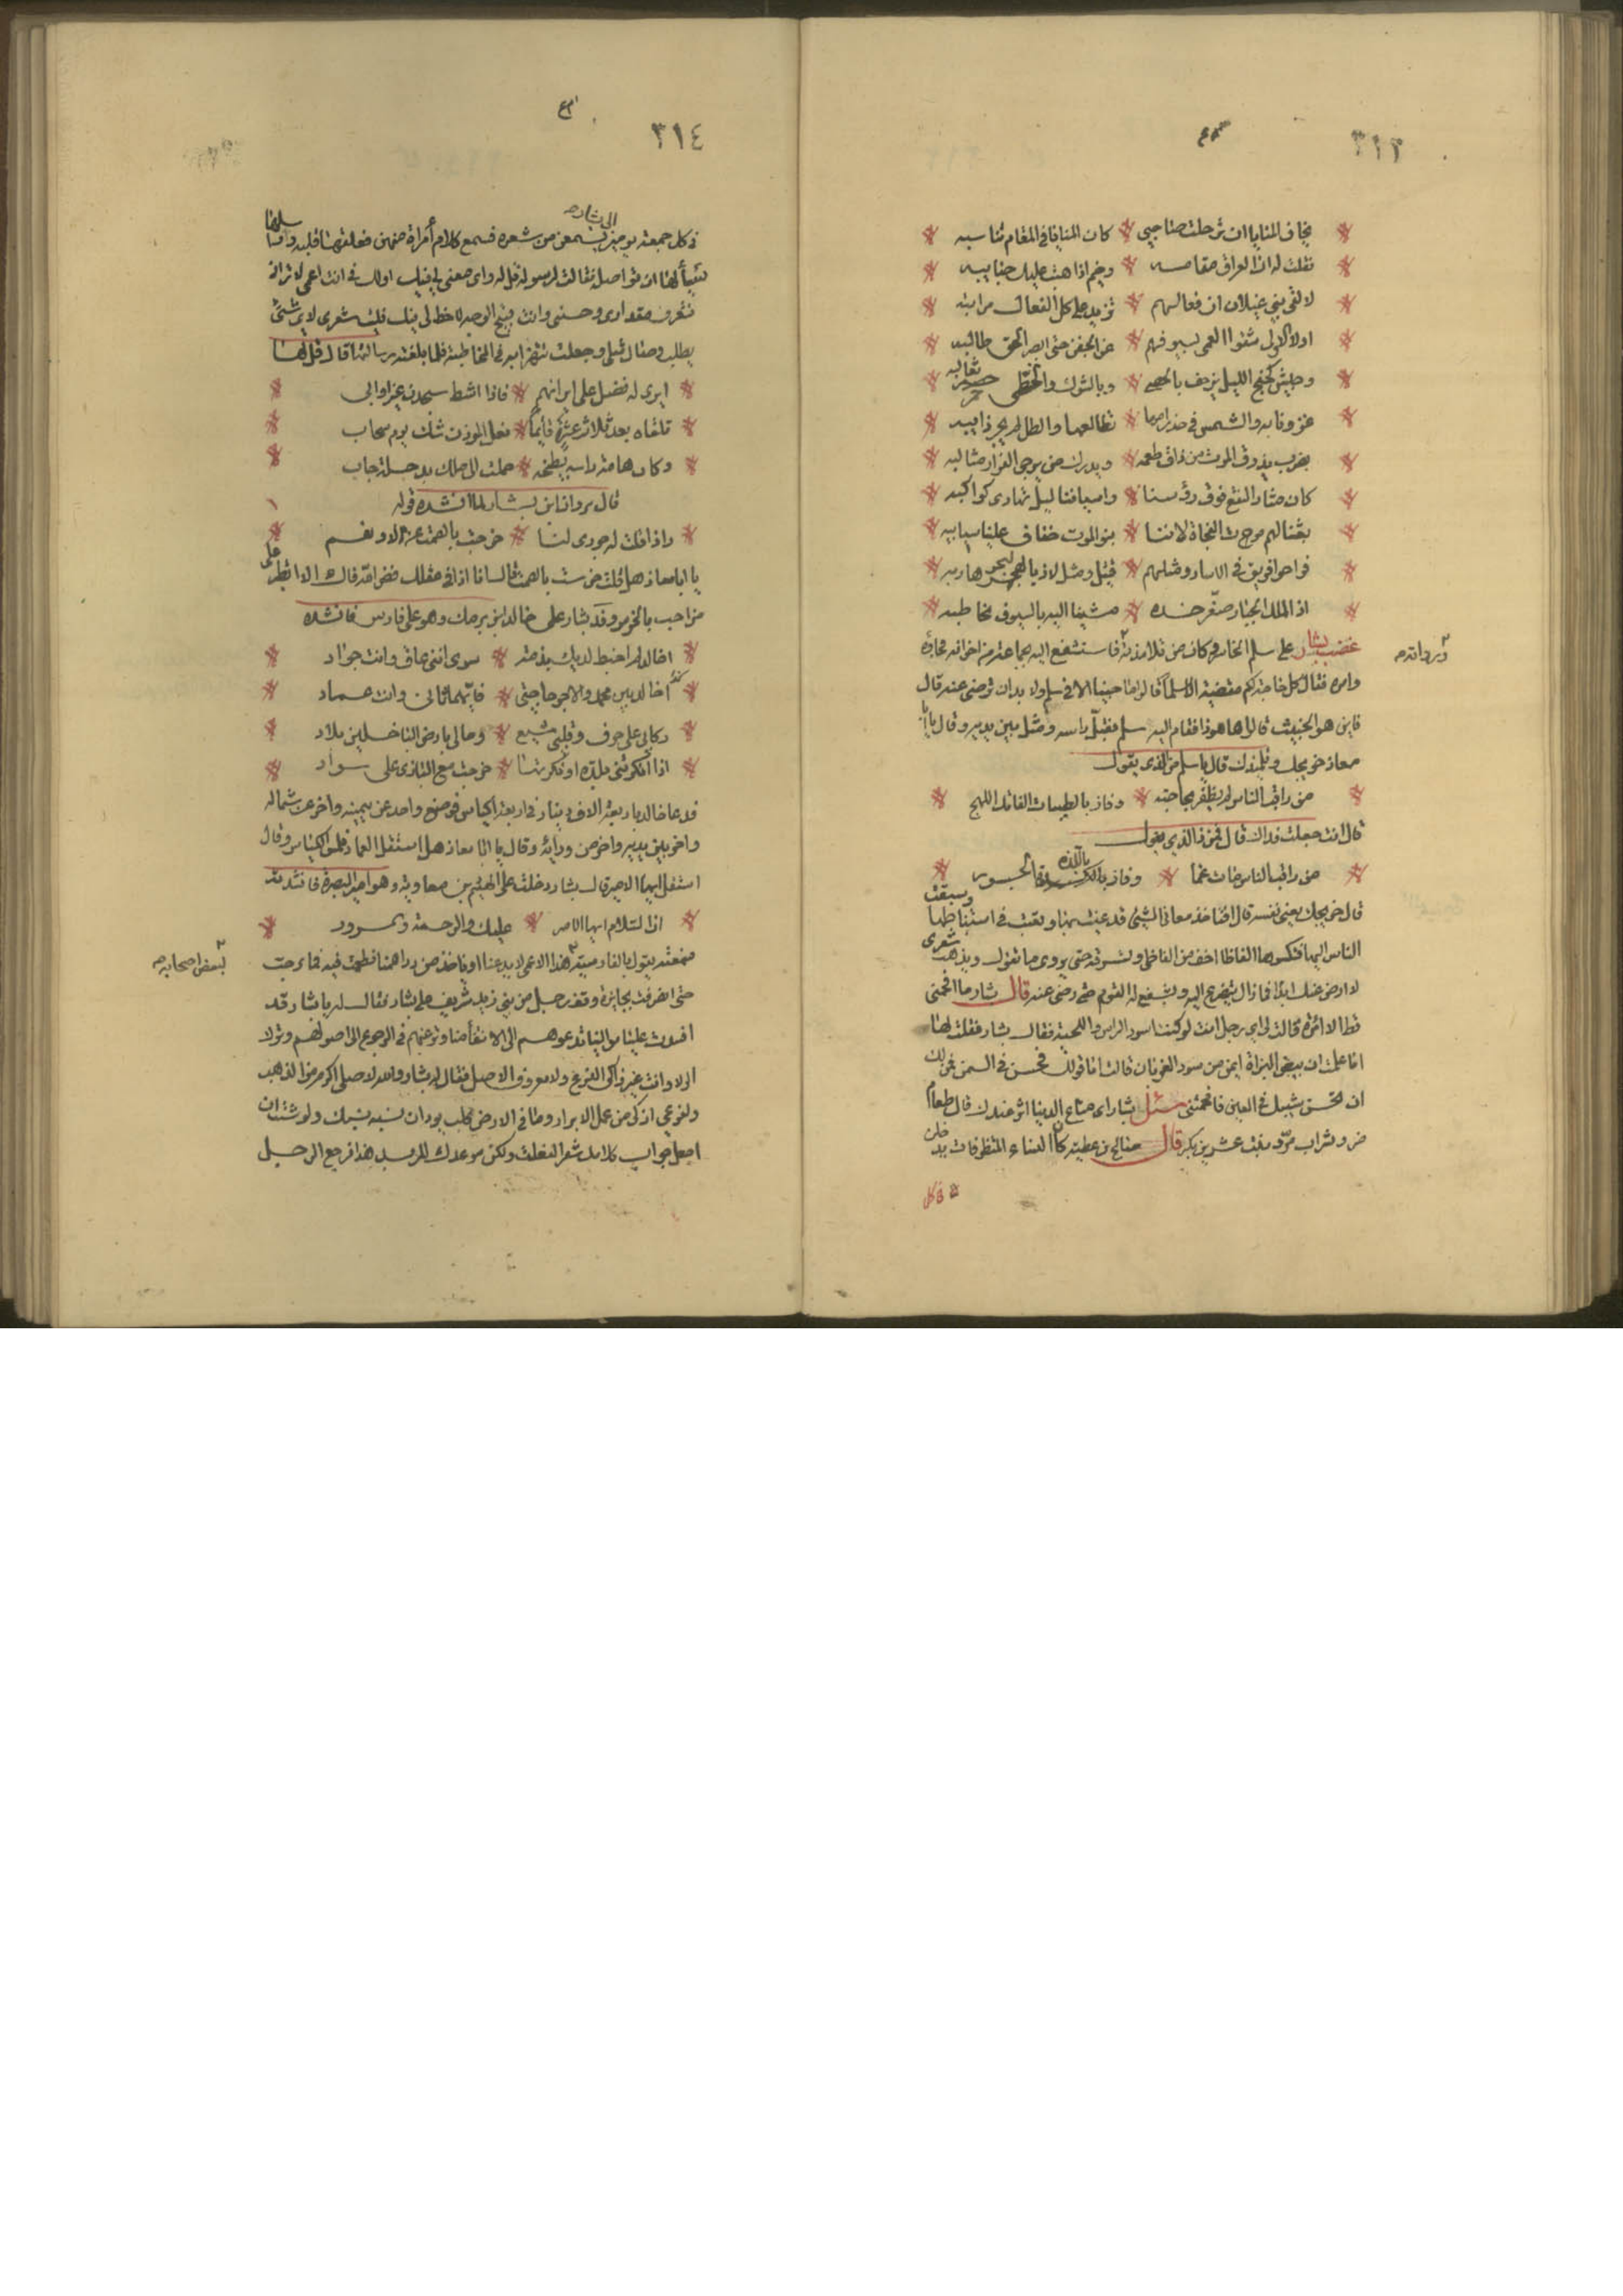 ٣١٣
يخاف المنايا ان ترحلت صاحبي * كان المنايا في المقام تناسبه
فقلت له ان العراق مقامه * وخيم اذا هبت عليك جنايبه
لالقى بني عيلان ان فعالهم * تزيد على كل الفعال مراتبه
اولاك الاولى شقوا العمى بسيوفهم * عن الجفن حتى ابصر الحق طالبه
وجيش كجنح الليل يزحف بالحصى * وبالشوك والخطى حمر ثعالبه
غزونا به والشمس في خدر امها * تطالعها والطل لم يجر ذايبه
بضرب يذوق الموت من ذاق طعمه * ويدرك من يرجى الفرار مثالبه
كان مثار النقع فوق رؤسنا * واسيافنا ليل تهاوى كواكبه
بعثنا لهم موت الفجاة لاننا * بنو الموت خفاق علينا سبايبه
فراحوا فريق في الاسار ومثلهم * قتيل ومثل لاذ بالبحر هاربه
اذا الملك الجبار صعّر خده * مشينا اليه بالسيوف نخاطبه
غضب بشار على سلم الخاسر وكان من تلامذته فاستشفع اليه بجماعة من اخوانه فجاؤه
وامره فقال كل حاجة لكم مقضية الا سلما قالوا ما جيناك الا في سلم ولا بد ان ترضى عنه قال
فاين هو الخبيث قالوا ها هو ذا فقام اليه سلم فقبّل راسه ومثل بين يديه وقال يا ابا
معاذ خريجك وتلميذك قال يا سلم من الذي يقول
من راقب الناس لم يظفر بحاجته * وفاز بالطيبات الفاتك اللهج
قال انت جعلت فداك قال فمن ذا الذي يقول
من راقب الناس مات غما * وفاز باللذه الجسور
قال خريجك يعني نفسه قال افتاخذ معاني التي قد عنيت بها وتعبت في استنباطها وسبقت
الناس اليها فتكسوها الفاظا اخف من الفاظي ولسرقه حتى يروى ما تقول ويذهب شعرى
لا ارضى عنك ابدا فما زال يتضرع اليه ويشفع له القوم حتى رضى عنه قال بشار ما افحمنى
قط الا امرأة قالت لى اي رجل انت لو كنت اسود الراس واللحية فقال بشار فقلت لها
اما علمت ان بيض البزاة اثمن من سود الغربان قالت اما قولك فحسن في السمع فمن لك
ان يحسن شيبك في العين فافحمتنى سئل بشار اى متاع الدنيا اثر عندك قال طعام
مز وشراب مرّ وبنت عشرين بكر قال صالح بن عطية كان النساء المتظرفات يدخلن
في كل
٣١٤
في كل جمعة يومين يسمعن من شعره فسمع كلام أمراة منهن فعلقها قلبه وراسلها
الى بشار
يسألها ان تواصله فقالت لرسوله قل له واى معنى لي فيك او لك في انت اعمى لا تراني
فتعرف مقدارى وحسنى وانت قبيح الوجه لا حظ لى فيك فليت شعرى لاى شئ
يطلب وصال مثلى وجعلت تتهزا به في المخاطبة فلما بلغته رسالتها قال قل لها
ايرى له فضل على ايرانهم * فاذا اشط سجدن غير اوابي
تلقاه بعد ثلاث عشرة قائما * فعل المؤذن شك يوم سحاب
وكان هامة راسه بطيخه * حملت الى ملك بدجلة جاب
قال مروان ابن بشار لما انشده قوله
واذا قلت له جودى لنا * خرجت بالصمت عن لا ونعم
يا ابا معاذ هلا قلت خرست بالصمت قال انا اذا في عقلك فض الله فاك الا اتطير على
من احب بالخرس وفد بشار على خالد بن برمك وهو على فارس فانشده
اخالد لم اخبط لديك بذمة * سوى انني عاف وانت جواد
اخالد بين حمد والاجر حاجتي * فايهما تاتي وانت عماد
ركابي على حرف وقلبي مشيع * ومالي بارض الباخلين بلاد
اذا انكرتني بلدة او نكرتها * خرجت مع البازى على سواد
فدعا خالد باربعة الاف دينار في اربعة اكياس فوضع واحد عن يمينه واخر عن شماله
واخر بين يديه واخر من ورائه وقال يا ابا معاذ هل استقل العماد فلمس الاكياس وقال
استقل ايها الامير قال بشار دخلت على الهيثم بن معاوية وهو امير البصرة فانشدته
ان السلام ايها الامير * عليك والرحمة والسرور
فسمعته يقول هذا الاعمى لا يدعنا او ياخذ من دراهمنا فطمعت فيه فما برحت
لبعض اصحابه
حتى انصرفت بجائزة وقف رجل من بني زيد شريف على بشار فقال له يا بشار قد
افسدت علينا موالينا تدعوهم الى الانتفأ منا وترغبهم في الرجوع الى اصولهم وترك
الولا وانت غير زاكى الفرع ولا معروف الاصل فقال له بشار والله لاصلى اكرم من الذهب
ولفرعي ازكى من عمل الابرار وما في الارض كلب يود ان نسبه نسبك ولو شئت ان
اجعل جواب كلامك شعرا لفعلت ولكن موعدك المربد هذا فرجع الرجل